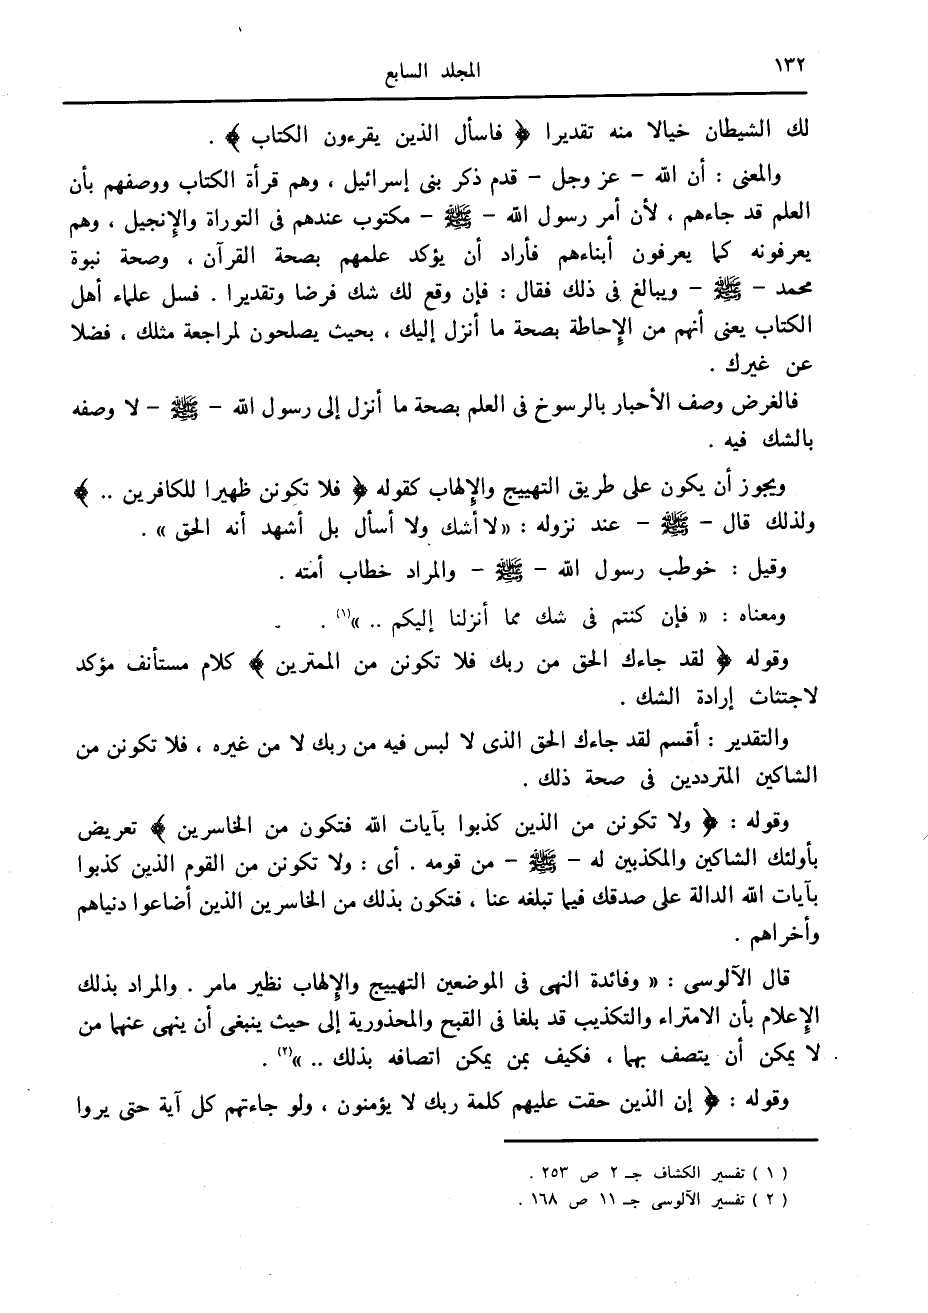 ١٣٢
المجلد السابع
لك الشيطان خيالا منه تقديرا ﴿ فاسأل الذين يقرءون الكتاب ﴾ .
والمعنى : أن الله – عز وجل – قدم ذكر بنى إسرائيل ، وهم قرأة الكتاب ووصفهم بأن
العلم قد جاءهم ، لأن أمر رسول الله – ﷺ – مكتوب عندهم فى التوراة والإنجيل ، وهم
يعرفونه كما يعرفون أبناءهم فأراد أن يؤكد علمهم بصحة القرآن ، وصحة نبوة
محمد – ﷺ – ويبالغ فى ذلك فقال : فإن وقع لك شك فرضا وتقديرا . فسل علماء أهل
الكتاب يعنى أنهم من الإحاطة بصحة ما أنزل إليك ، بحيث يصلحون لمراجعة مثلك ، فضلا
عن غيرك .
فالغرض وصف الأحبار بالرسوخ فى العلم بصحة ما أنزل إلى رسول الله – ﷺ – لا وصفه
بالشك فيه .
ويجوز أن يكون على طريق التهييج والإلهاب كقوله ﴿ فلا تكونن ظهيرا للكافرين .. ﴾
ولذلك قال – ﷺ – عند نزوله : «لا أشك ولا أسأل بل أشهد أنه الحق » .
وقيل : خوطب رسول الله – ﷺ – والمراد خطاب أمته .
ومعناه : « فإن كنتم فى شك مما أنزلنا إليكم .. »(١) .
وقوله ﴿ لقد جاءك الحق من ربك فلا تكونن من الممترين ﴾ كلام مستأنف مؤكد
لاجتثاث إرادة الشك .
والتقدير : أقسم لقد جاءك الحق الذى لا لبس فيه من ربك لا من غيره ، فلا تكونن من
الشاكين المترددين فى صحة ذلك .
وقوله : ﴿ ولا تكونن من الذين كذبوا بآيات الله فتكون من الخاسرين ﴾ تعريض
بأولئك الشاكين والمكذبين له – ﷺ – من قومه . أى : ولا تكونن من القوم الذين كذبوا
بآيات الله الدالة على صدقك فيما تبلغه عنا ، فتكون بذلك من الخاسرين الذين أضاعوا دنياهم
وأخراهم .
قال الآلوسى : « وفائدة النهى فى الموضعين التهييج والإلهاب نظير مامر . والمراد بذلك
الإعلام بأن الامتراء والتكذيب قد بلغا فى القبح والمحذورية إلى حيث ينبغى أن ينهى عنهما من
لا يمكن أن يتصف بهما ، فكيف بمن يمكن اتصافه بذلك .. »(٢) .
وقوله : ﴿ إن الذين حقت عليهم كلمة ربك لا يؤمنون ، ولو جاءتهم كل آية حتى يروا
( ١ ) تفسير الكشاف جـ ٢ ص ٢٥٣ .
( ٢ ) تفسير الآلوسى جـ ١١ ص ١٦٨ .